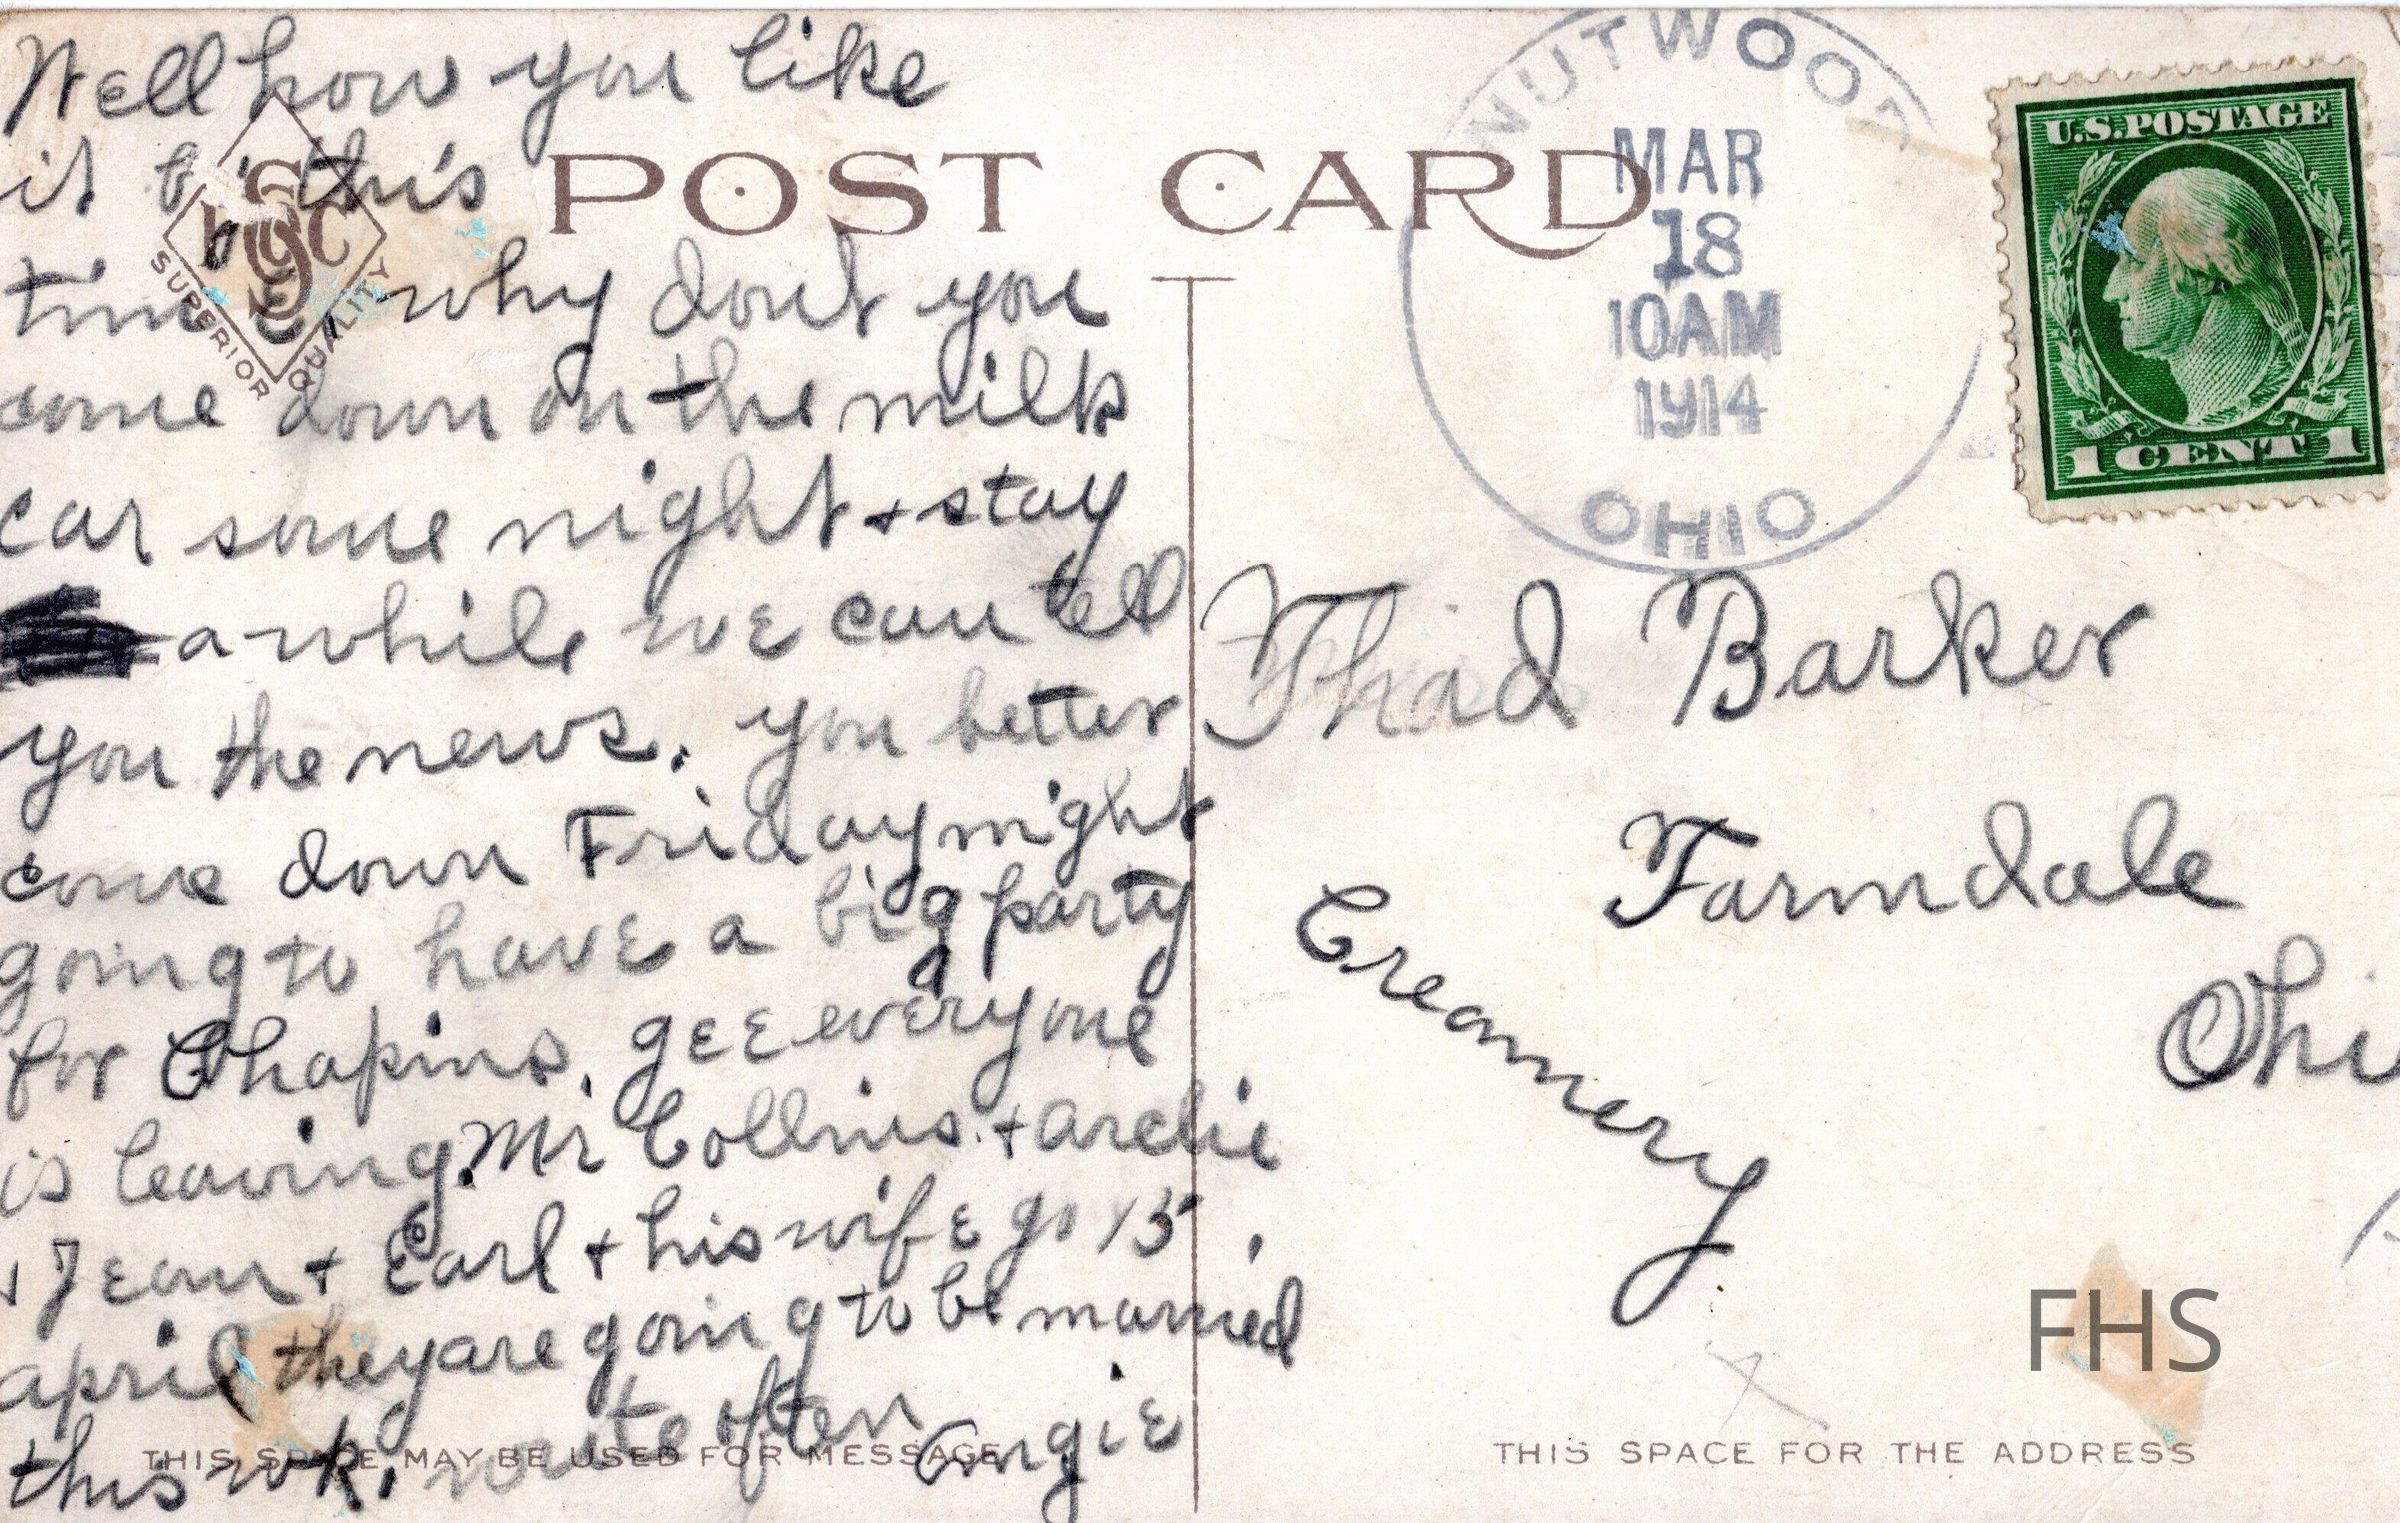 Well how you like
it this
time why dont you
come down on the milk
car some night + stay
a while we can tell
you the news. you better
come down Friday night
going to have a big party
for Chapins. gee everyone
is leaving. Mr Collins + archie
+ Jean + Earl + his wife go 15
april they are going to be married
this wk. write often Angie
SUPERIOR QUALITY
POST CARD
NUTWOOD
MAR
18
10AM
1914
OHIO
U.S. POSTAGE
1 CENT 1
Thad Barker
Farmdale
Ohio
Creamery
FHS
THIS SPACE MAY BE USED FOR MESSAGE
THIS SPACE FOR THE ADDRESS